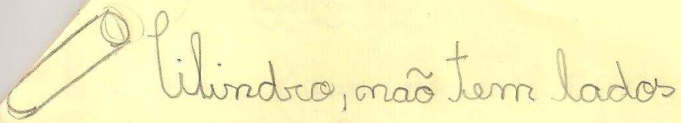 Cilindro, não tem lados